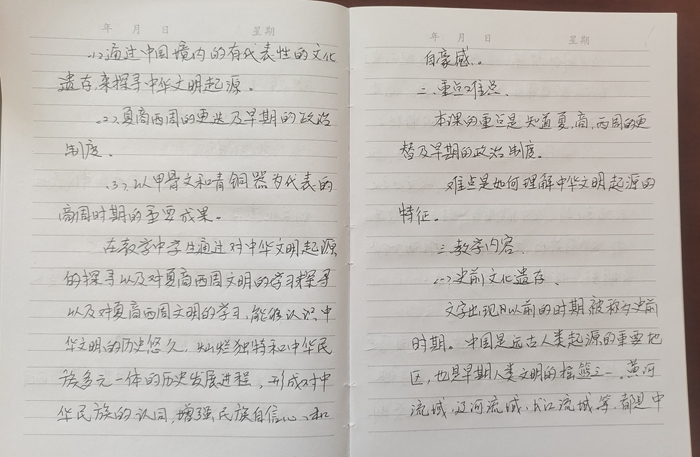 年 月 日 星期
(1)通过中国境内的有代表性的文化
遗存,来探寻中华文明起源。
(2)夏商西周的更迭及早期的政治
制度。
(3)以甲骨文和青铜器为代表的
商周时期的重要成果。
在教学中学生通过对中华文明起源
的探寻以及对夏商西周文明的学习探寻
以及对夏商西周文明的学习,能够认识中
华文明的历史悠久,灿烂独特和中华民
族多元一体的历史发展进程,形成对中
华民族的认同,增强民族自信心、和
年 月 日 星期
自豪感。
二、重点难点
本课的重点是知道夏、商、西周的更
替及早期的政治制度。
难点是如何理解中华文明起源的
特征。
三、教学内容
(一)史前文化遗存。
文字出现以前的时期被称为史前
时期。中国是远古人类起源的重要地
区,也是早期人类文明的摇篮之一,黄河
流域、辽河流域、长江流域等,都是中